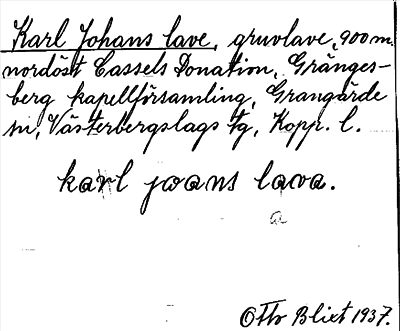 Karl Johans lave, gruvlave, 900 m.
nordöst Cassels Donation, Gränges-
berg kapellförsamling, Grangärde
sn, Västerbergslags tg, Kopp. l.
karl joans lava.
a
Otto Blixt 1937.